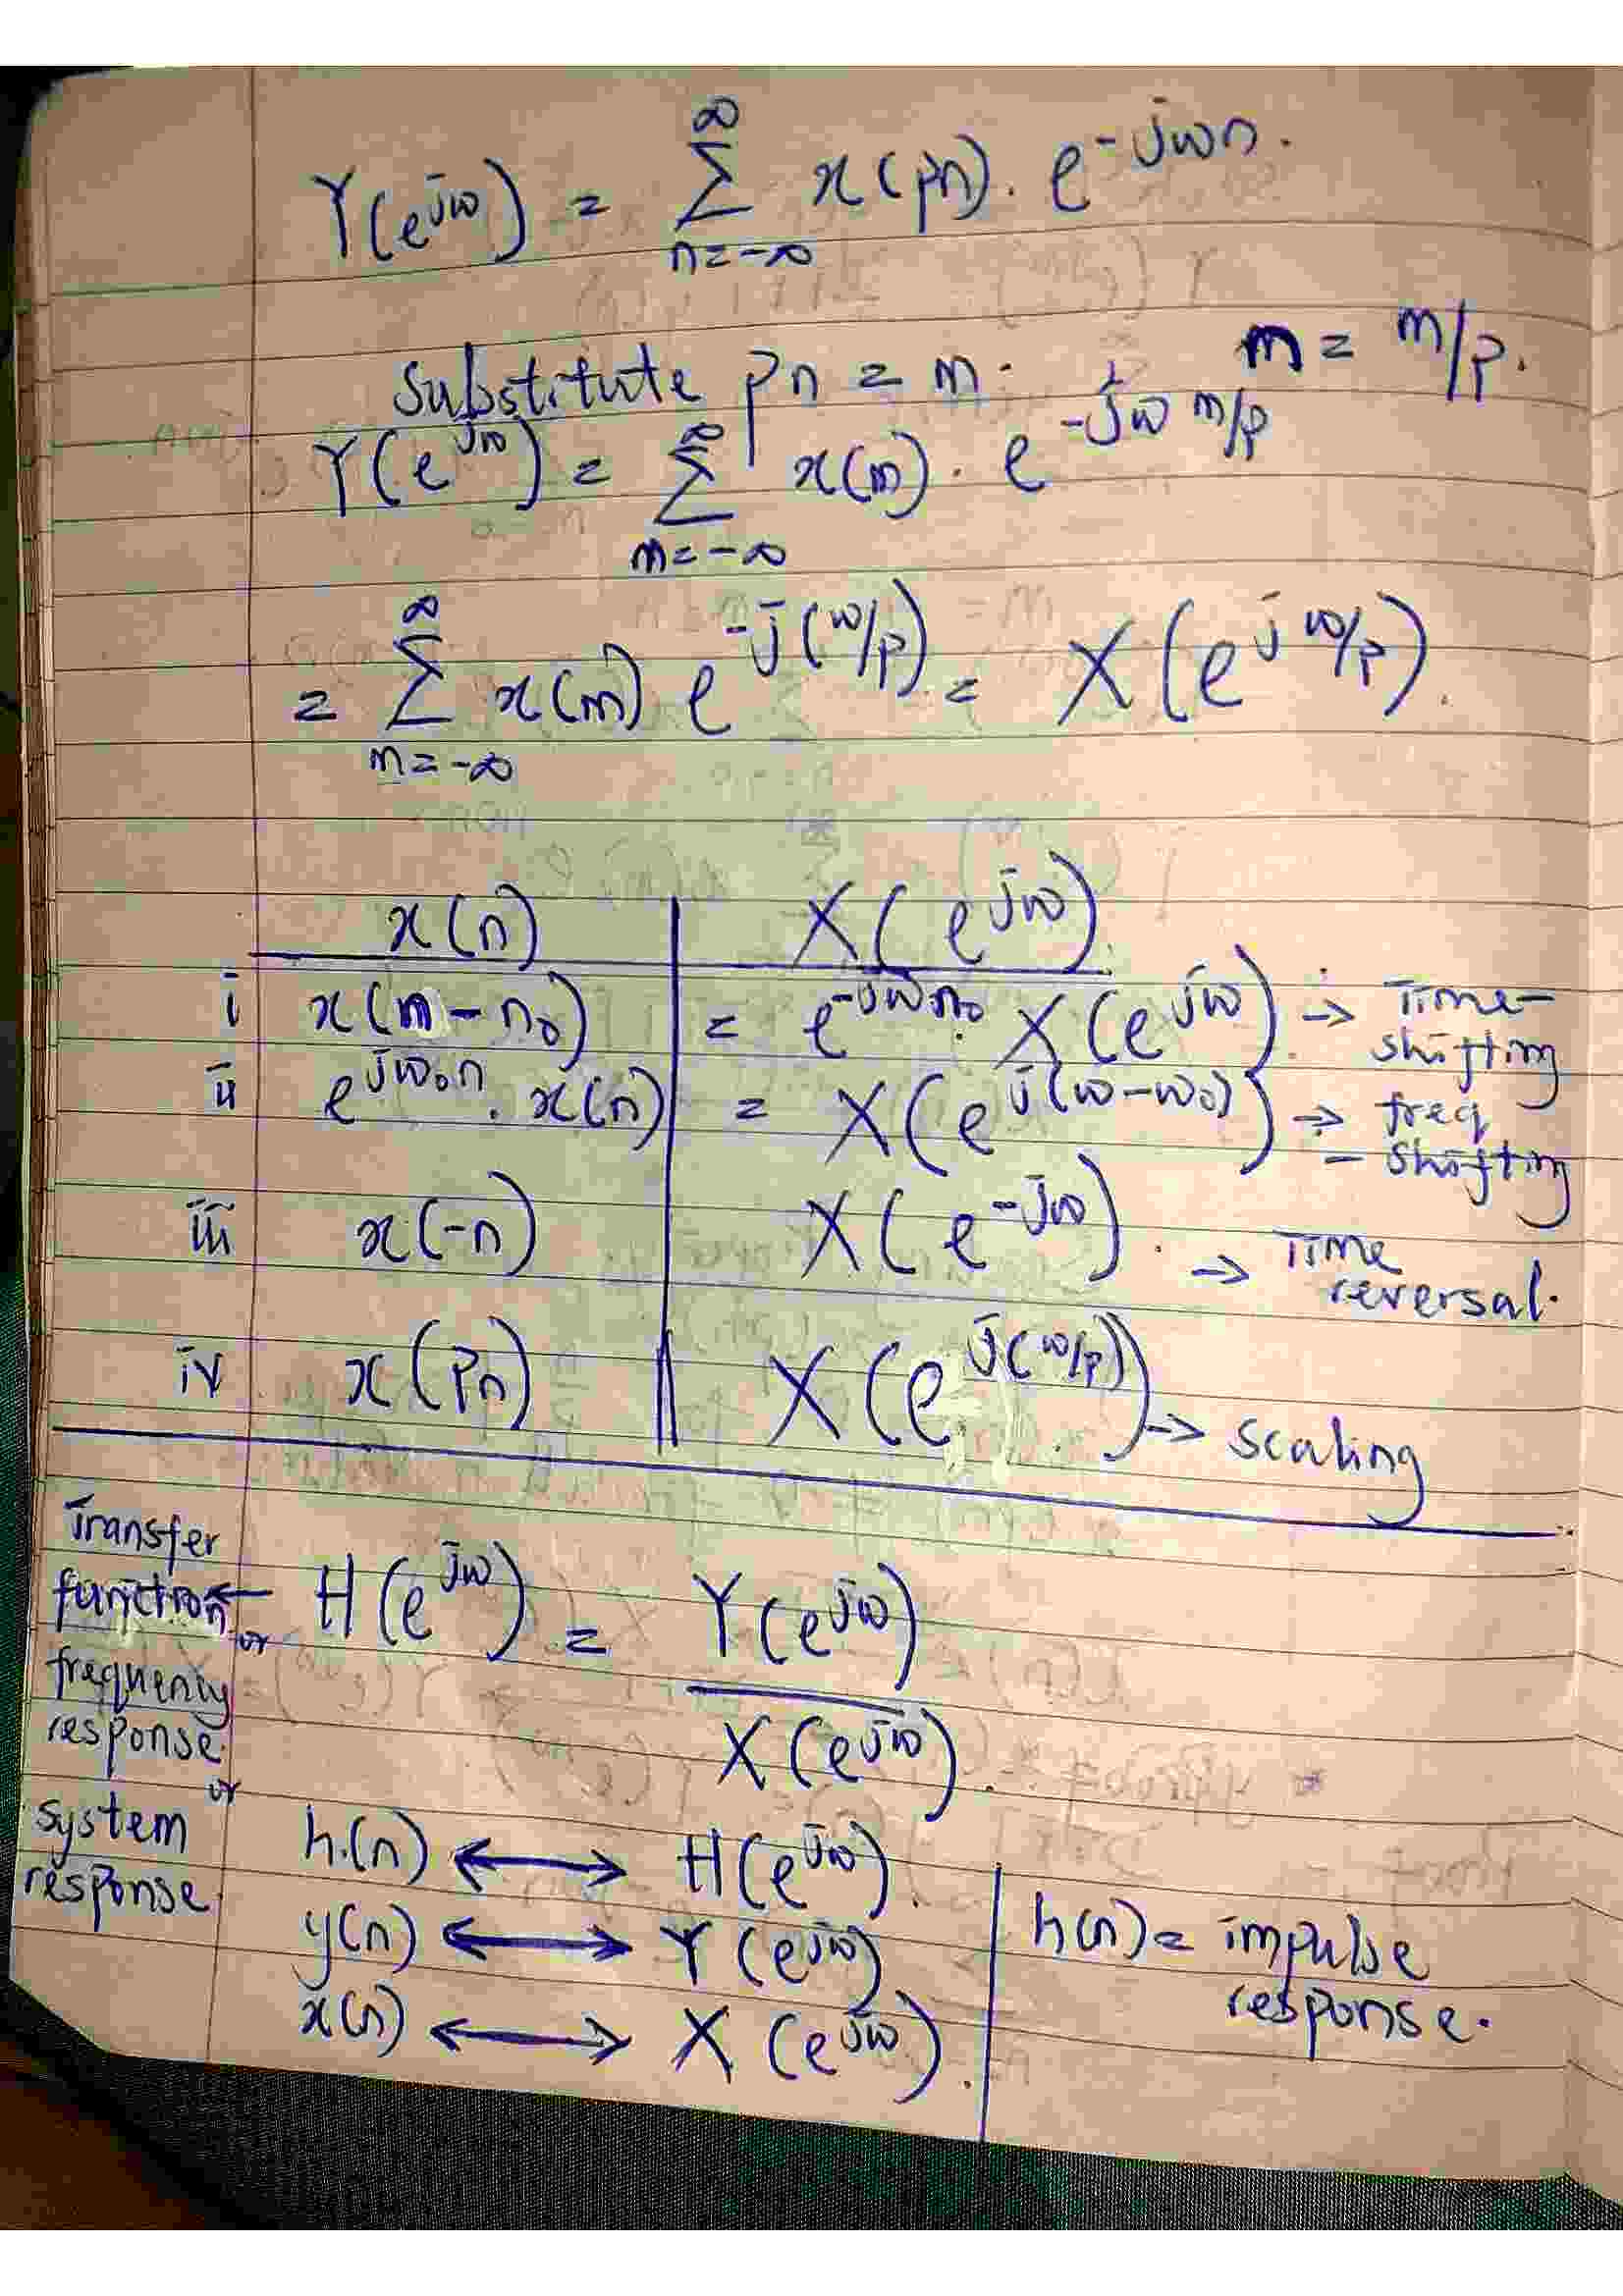 Y(e^jω) = ∞Σn=-∞ x(pn). e^-jωn.
Substitute pn = m. m = m/p.
Y(e^jω) = ∞Σm=-∞ x(m). e^-jω m/p
= ∞Σm=-∞ x(m) e^-j(ω/p) = X(e^j ω/p).
x(n) | X(e^jω).
i x(m-n₀) = e^-jωn₀. X(e^jω). → Time-
shifting
ii e^jω₀n. x(n) = X(e^j(ω-ω₀)) → freq
- shifting
iii x(-n) X(e^-jω). → Time
reversal.
iv x(pn) X(e^j(ω/p)) → scaling
Transfer
function ← H(e^jω) = Y(e^jω) / X(e^jω).
or
frequency
response.
or
system
response.
h(n) ⟷ H(e^jω).
y(n) ⟷ Y(e^jω)
x(n) ⟷ X(e^jω).
h(n) = impulse
response.